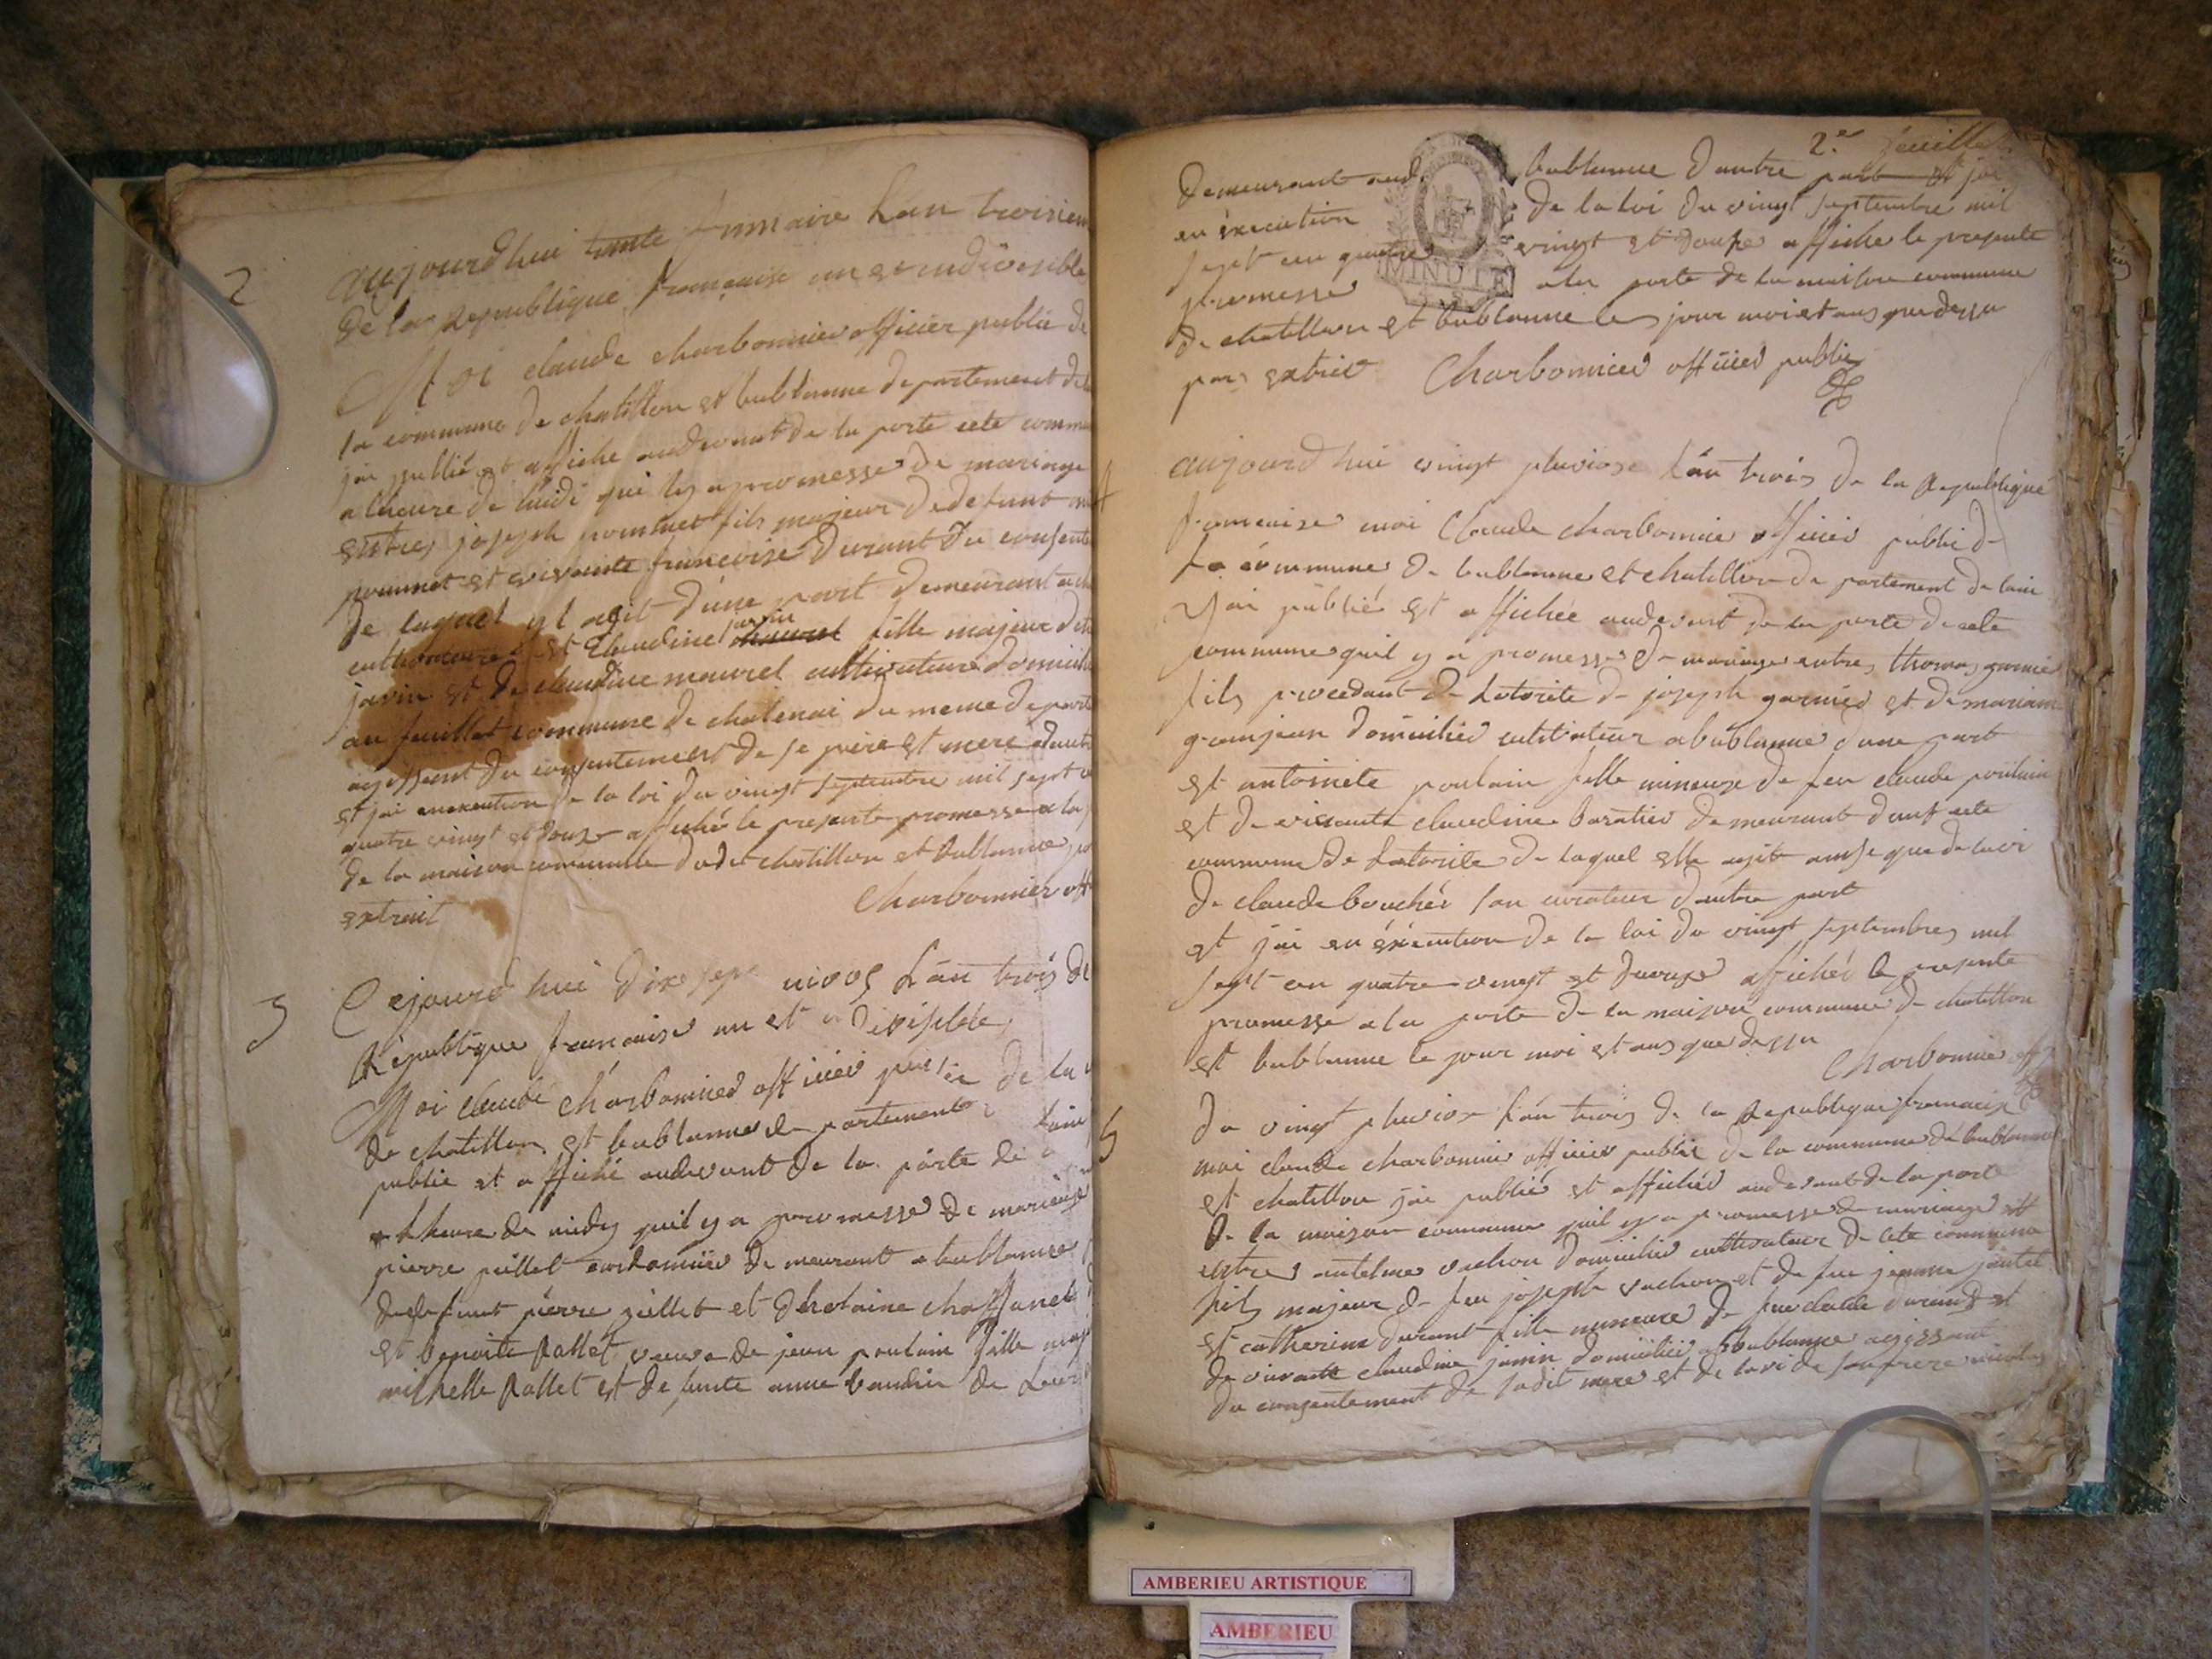 2
aujourdhui trente frimaire Lan troisiem
de la Republique francaise une et indivisible
Moi claude charbonnier officier public de
la commune de chatillon et bublanne departement de
jai publié et affiche audevant de la porte cete commu
a lheure de midi qui ly a promesse de mariage
entre joseph pommet fils majeur de defunt
pommet et vivante francoise Durant du consente
de laquel yl agit d'une part demeurant a
et Claudine javin maurel fille majeur de
javin et de claudine maurel cultivateur domicilie
au fuillet commune de chatenai du meme depart
agissent du consentement de se pere et mere dautr
et jai enexecution de la loi du vingt septembre mil sept c
quatre vingt et douze affiché le presente promesse a la p
de la maison commune dudit chatillon et bublanne, p
extrait
Charbonnier off
3
Cejourd hui dix sept nivos Lan trois de
Republique francaise un et
Moi claude charbonnier officier public de la
de chatillon et bublanne departement
publié et affiché audevant de la porte de
a lheure de midy quil y a promesse de mariage
pierre cordonnier demeurant a bublanne
de defunt pierre et
et benoite Rallet veuve de jean poulain fille maj
michelle Rallet et de funte anne baudin de
2.e feuillet
demeurant aud. bublanne dautre part et jai
en execution de la loi du vingt septembre mil
sept cen quatre vingt et douze affiche le presente
promesse a la porte de la maison commune
MINUTE
de chatillon et bublanne le jour moi et ans que dessu
par extrait Charbonnier officier public
4
aujourd hui vingt pluviose Lan trois de la Republique
francaise moi Claude charbonnier officier public de
la commune de bublanne et chatillon departement de lain
Jai publié et affichée audevant de la porte de cete
commune quil y a promesse de mariage entre thomas garnier
fils procedant de Latorite de joseph garnier et de mariane
granjean domicilier cultivateur a bublanne dune part
et antoinete poulain fille mineuse de feu claude poulain
et de vivante claudine baratier demeurant dans cete
commune de Latorite de laquel elle agit ainse que de lavi
de claude bouchér son curateur dautre part
et jai en éxécution de la loi du vingt septembre mil
sept cen quatre vingt et douze affichér le presente
promesse a la porte de la maison commune de chatillon
et bublanne le jour moi et ans que dessu
Charbonnier off
5
du vingt pluviose Lan trois de la Republique francaise
moi claude charbonnier officier public de la commune de bublanne
et chatillon jai publié et affichér audevant de la porte
de la maison commune quil y a promesse de mariage
entre antelme vachon domicilier cultivateur de cete commune
fils majeur de feu joseph vachon et de feu jeanne
et catherine durant fille mineure de feu claude durand et
de vivante claudine janin domicilier a bublanne agissant
du consentement de sadit mere et de lavi de son frere nicolas
AMBERIEU ARTISTIQUE
AMBERIEU